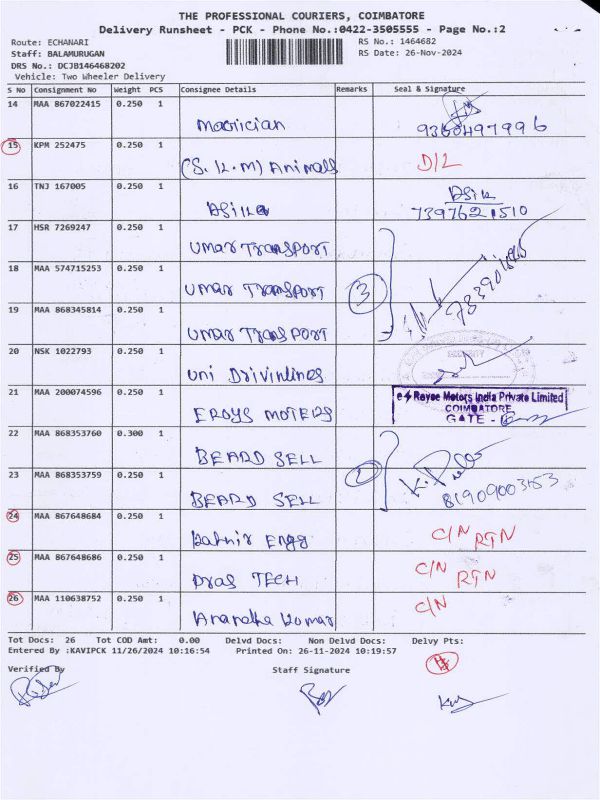 THE PROFESSIONAL COURIERS, COIMBATORE
Delivery Runsheet - PCK - Phone No.:0422-3505555 - Page No.:2
Route: ECHANARI RS No.: 1464682
Staff: BALAMURUGAN RS Date: 26-Nov-2024
DRS No.: DCJB146468202
Vehicle: Two Wheeler Delivery
S No Consignment No Weight PCS Consignee Details Remarks Seal & Signature
14 MAA 867022415 0.250 1 Magician
15 KPM 252475 0.250 1 (S.K.M) Animals D/L
16 TNJ 167005 0.250 1 Asika 7397621510
17 HSR 7269247 0.250 1 Umar Transport
18 MAA 574715253 0.250 1 Umar Transport 3
19 MAA 868345814 0.250 1 Umar Transport
20 NSK 1022793 0.250 1 Uni Drivinlines
SECURITY
21 MAA 200074596 0.250 1 EROYS MOTERS
e Royce Motors India Private Limited
COIMBATORE
GATE -
22 MAA 868353760 0.300 1 BEARD SELL 2
23 MAA 868353759 0.250 1 BEARD SELL
24 MAA 867648684 0.250 1 Kathir Engg C/N RTN
25 MAA 867648686 0.250 1 Pras TECH C/N RTN
26 MAA 110638752 0.250 1 Anandha Kumar C/N
Tot Docs: 26 Tot COD Amt: 0.00 Delvd Docs: Non Delvd Docs: Delvy Pts:
Entered By :KAVIPCK 11/26/2024 10:16:54 Printed On: 26-11-2024 10:19:57
Verified By Staff Signature